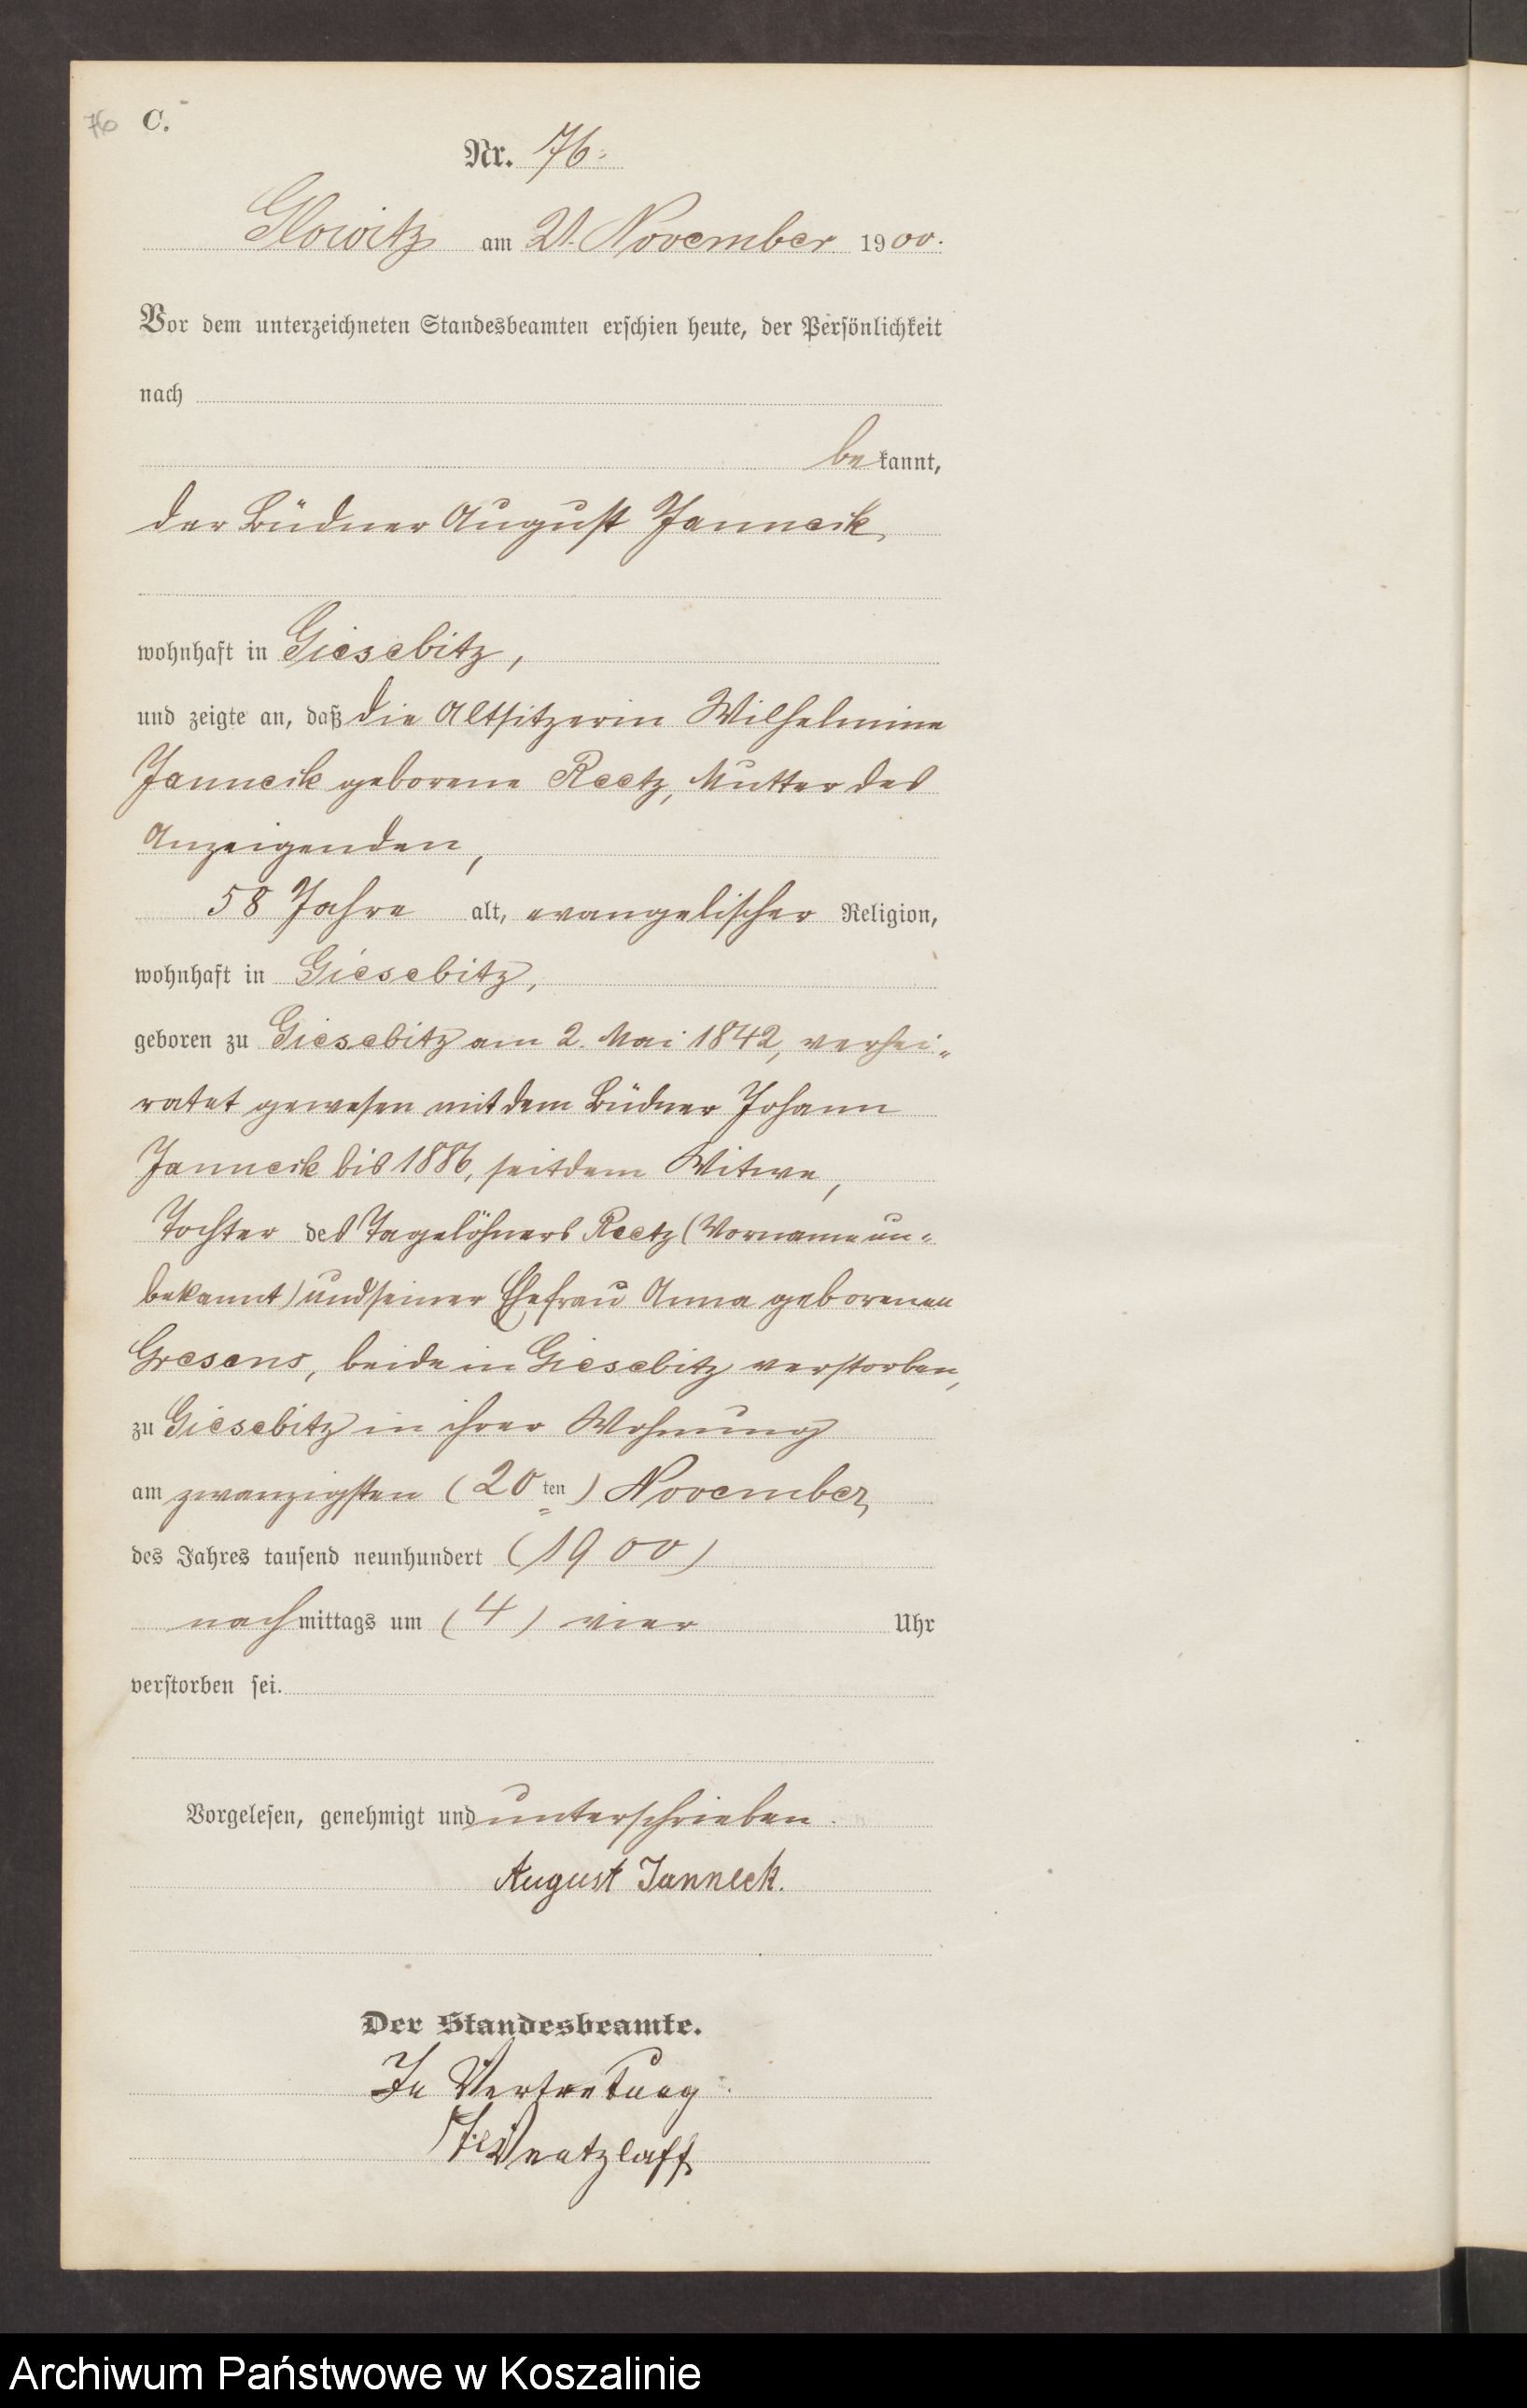 76 C.
Nr. 76.
Glowitz am 21. November 1900.
Vor dem unterzeichneten Standesbeamten erschien heute, der Persönlichkeit
nach
bekannt,
der Büdner August Janneck,
wohnhaft in Giesebitz,
und zeigte an, daß die Altsitzerin Wilhelmine
Janneck geborene Reetz, Mutter des
Anzeigenden,
58 Jahre alt, evangelischer Religion,
wohnhaft in Giesebitz,
geboren zu Giesebitz am 2. Mai 1842, verhei-
ratet gewesen mit dem Büdner Johann
Janneck bis 1886, seitdem Witwe,
Tochter des Tagelöhners Reetz (Vorname un-
bekannt) und seiner Ehefrau Anna geborenen
Gresens, beide in Giesebitz verstorben,
zu Giesebitz in ihrer Wohnung
am zwanzigsten (20ten) November
des Jahres tausend neunhundert (1900)
nachmittags um (4) vier Uhr
verstorben sei.
Vorgelesen, genehmigt und unterschrieben.
August Janneck.
Der Standesbeamte.
In Vertretung.
Archiwum Państwowe w Koszalinie